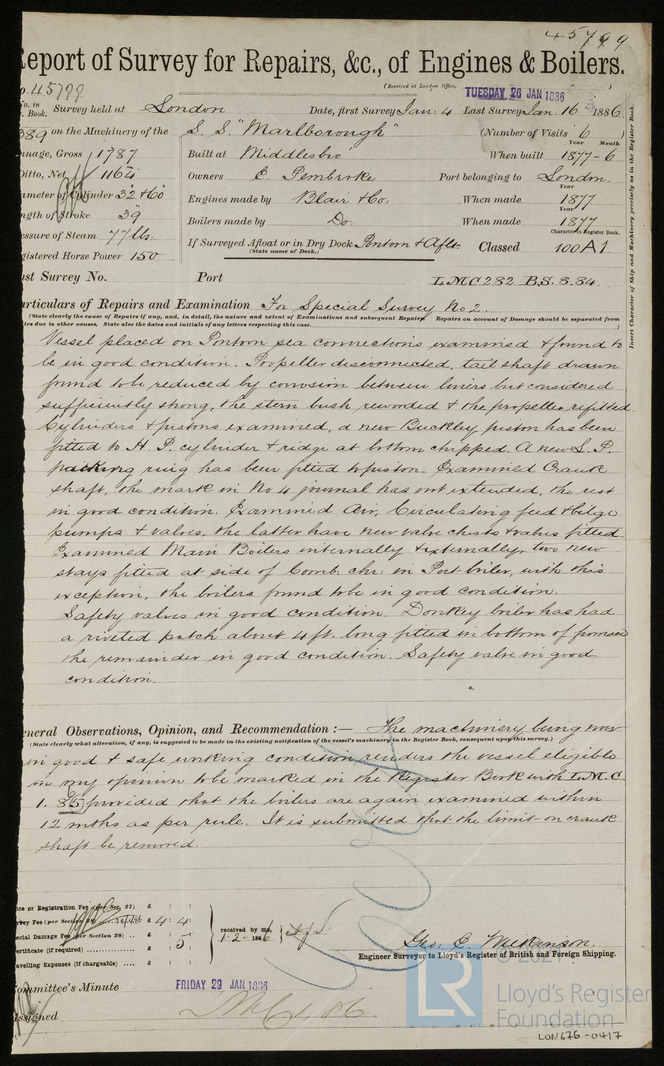 45799
Report of Survey for Repairs, &c., of Engines & Boilers.
No. 45799
(Received at London Office, TUESDAY 26 JAN 1886
No. in Reg. Book. Survey held at London Date, first Survey Jan: 4 Last Survey Jan 16 1886
389 on the Machinery of the S.S. "Marlborough" (Number of Visits 6)
Tonnage, Gross 1787 Built at Middlesbro' When built 1877-6 Year Month
Ditto, Net 1164 Owners E. Pembroke Port belonging to London
Diameter of Cylinder 32 & 60 Engines made by Blair & Co. When made 1877 Year
Length of Stroke 39 Boilers made by Do. When made 1877 Year
Pressure of Steam 77 lbs. If Surveyed Afloat or in Dry Dock Pontoon & Aflt. Classed 100A1 Character in Register Book.
(State name of Dock.)
Registered Horse Power 150
Insert Character of Ship and Machinery precisely as in the Register Book.
Last Survey No. Port L.M.C. 2.82. B.S. 3.84.
Particulars of Repairs and Examination For Special Survey No 2.
(State clearly the cause of Repairs if any, and, in detail, the nature and extent of Examinations and subsequent Repairs. Repairs on account of Damage should be separated from
Repairs due to other causes. State also the dates and initials of any letters respecting this case.
Vessel placed on Pontoon sea connections examined & found to
be in good condition. Propeller disconnected, tail shaft drawn
found to be reduced by corrosion between liners but considered
sufficiently strong, the stern bush rewooded & the propeller refitted.
Cylinders & pistons examined, a new Buckley piston has been
fitted to H.P. cylinder & ridge at bottom chipped. A new L.P.
packing ring has been fitted to piston. Examined Crank
shaft, the mark in No 4 journal has not extended, the rest
in good condition. Examined Air, Circulating feed & bilge
pumps & valves, the latter have new valve chests & valves fitted.
Examined Main Boilers internally & externally, two new
stays fitted at side of Comb. chr: in Port boiler, with this
exception, the boilers found to be in good condition.
Safety valves in good condition. Donkey boiler has had
a riveted patch about 4 ft. long fitted in bottom of furnace
the remainder in good condition. Safety valve in good
condition.
General Observations, Opinion, and Recommendation :— The machinery being now
(State clearly what alteration, if any, is suggested to be made in the existing notification of the vessel's machinery in the Register Book, consequent upon this survey.)
in good & safe working condition renders the vessel eligible
in my opinion to be marked in the Register Book with L.M.C.
1.85, provided that the boilers are again examined within
12 mths as per rule. It is submitted that the limit on crank
shaft be removed.
Office or Registration Fee (per Sec. 27) £ : :
Survey Fee (per Section 28) £ 4 : 4 :
Special Damage Fee (per Section 28) £ : :
Certificate (if required) £ : 5 :
Travelling Expenses (if chargeable) £ : :
received by me, 1-2-1886
Geo: C. Wilkinson.
Engineer Surveyor to Lloyd's Register of British and Foreign Shipping.
Committee's Minute FRIDAY 29 JAN 1886
Assigned
© 2021
LR
Lloyd's Register
Foundation
LON676-0417